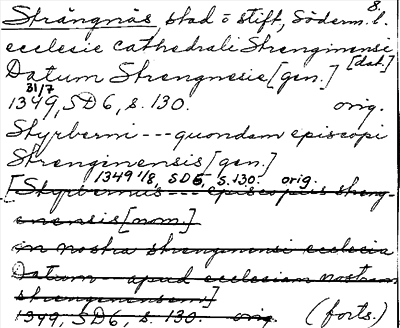 8.
Strängnäs, stad o stift, Söderm. l.
ecclesie cathedrali Strenginensi [dat.]
Datum Strengnesie [gen.]
31/7
1349, SD6, s. 130. orig.
Styrberni --- quondam episcopi
Strenginensis [gen.]
1349 1/8, SD6, s. 130. orig.
[Styrbernus --- episcopus streng-
enensis [nom.]
in nostra strengnensi ecclecia
Datum - apud ecclesiam nostram
strengenensem]
1349, SD6, s. 130. orig. (forts.)